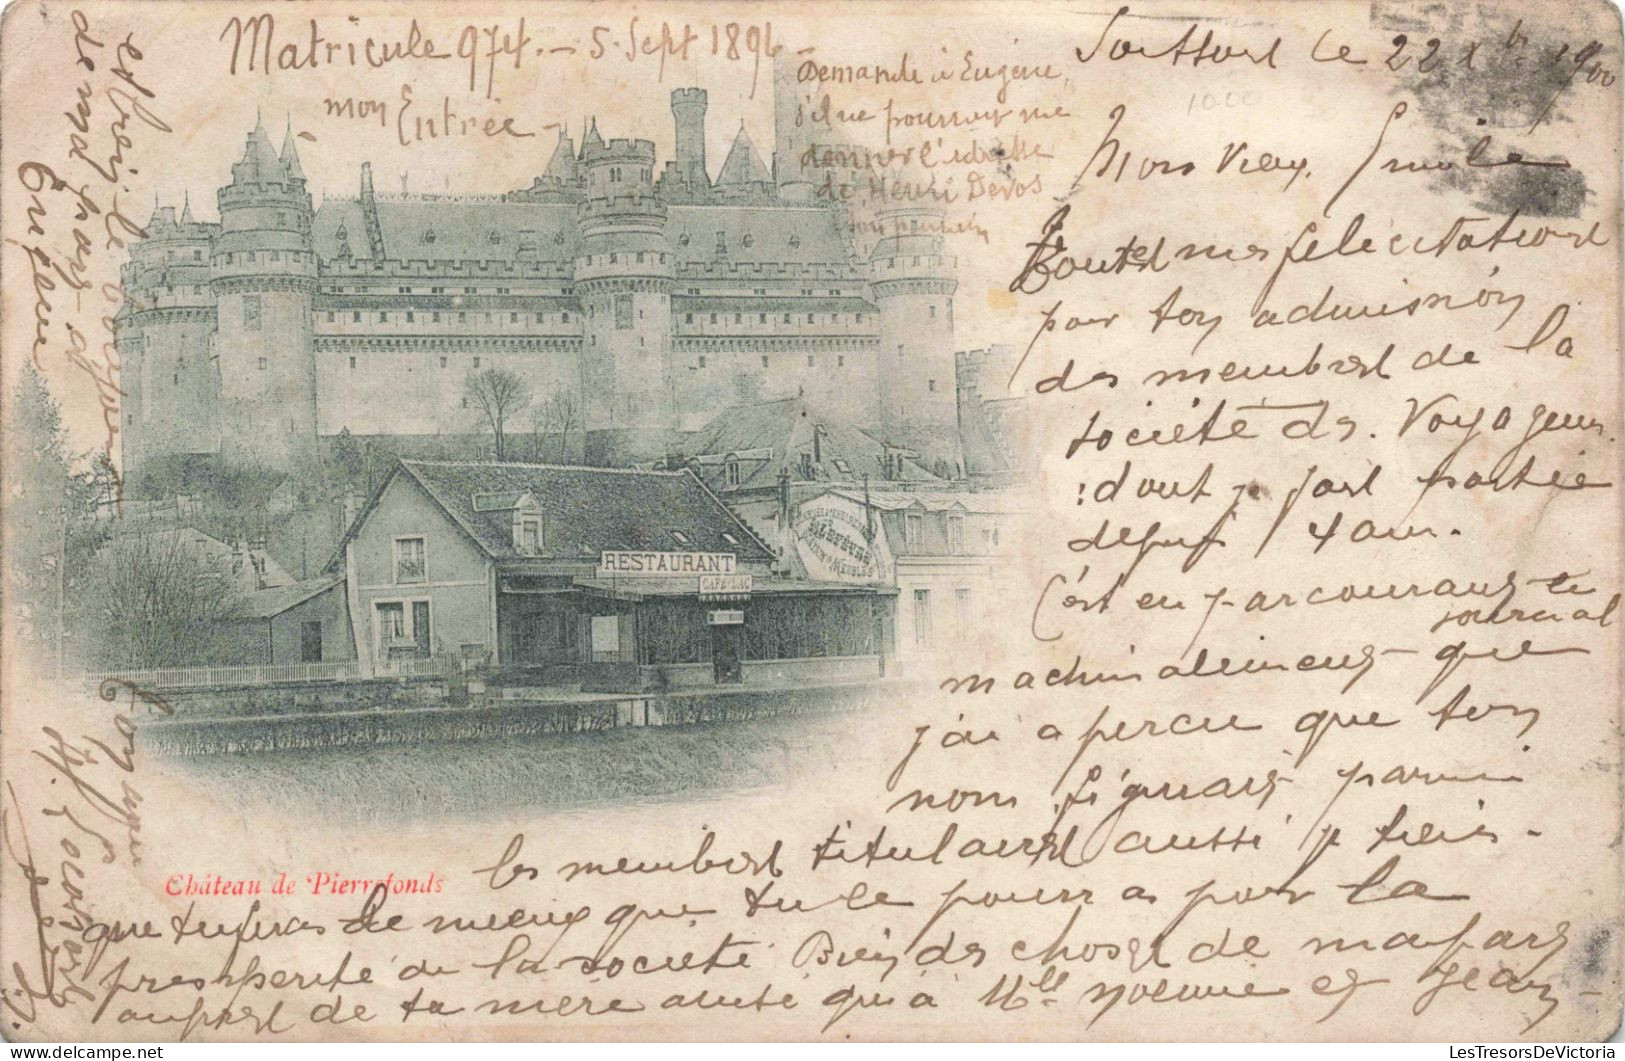 Matricule 974. - 5 Sept 1896
mon Entrée -
Demande à Eugène
s'il ne pourrait me
donner l'adresse
de Henri Devos
le 22 Xbre 1900
Mon Vieux Emile
Toutes mes félicitations
pour ton admission
des membres de la
société des Voyageurs
dont je fais partie
depuis 4 ans.
C'est en parcourant le
journal
machinalement que
j'ai aperçu que ton
nom figurait parmi
les membres titulaires aussi je
que tu feras de mieux que tu le pourras pour la
prospérité de la société Bien des choses de ma part
auprès de ta mère ainsi qu'à Mlle et Jean
et bien le
de ma part à
Eugène
Ton ami
RESTAURANT
CAFE DU LAC
LEFEVRE
MEUBLES
Château de Pierrefonds
LesTresorsDeVictoria